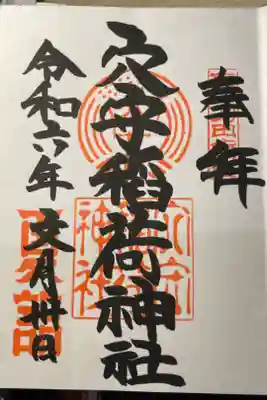 奉拝
穴守稲荷神社
令和六年文月卅日